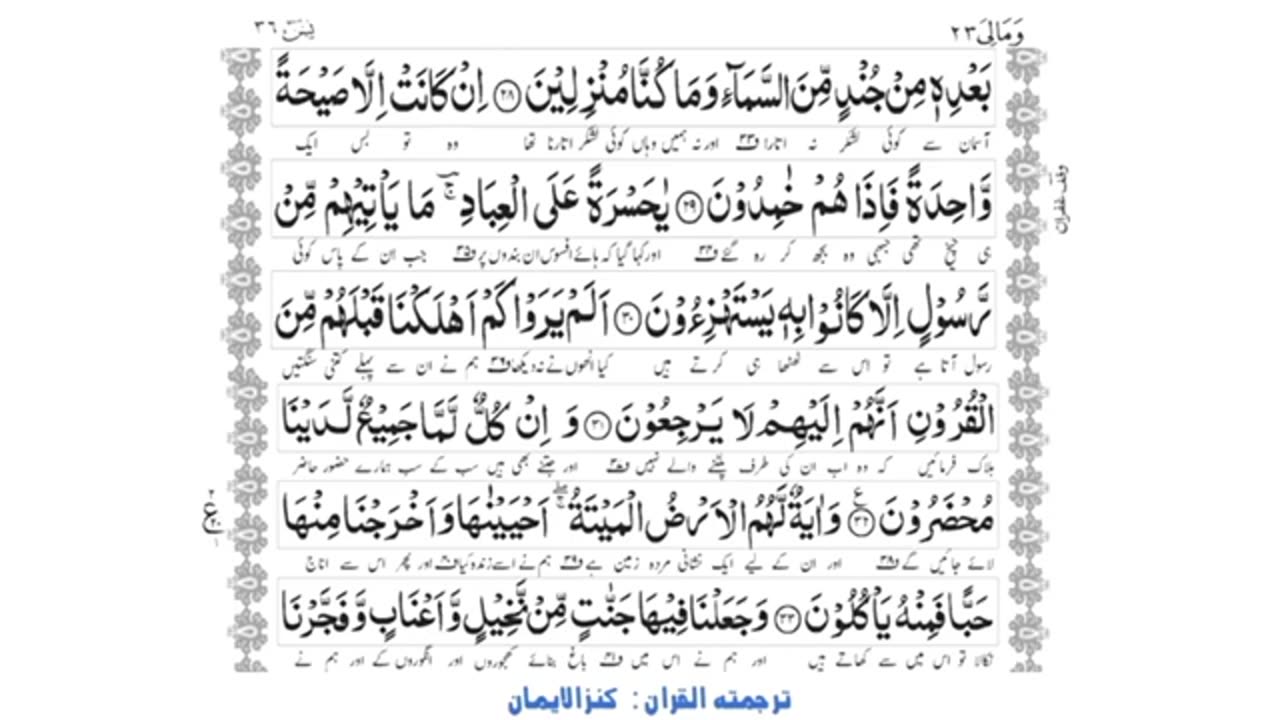 وَمَالِیَ ٢٣
یٰسٓ ٣٦
بَعْدِهٖ مِنْ جُنْدٍ مِّنَ السَّمَآءِ وَمَا كُنَّا مُنْزِلِیْنَ ﴿٢٨﴾ اِنْ كَانَتْ اِلَّا صَیْحَةً
آسمان سے کوئی لشکر نہ اتارا ف۳۳ اور نہ ہمیں وہاں کوئی لشکر اتارنا تھا وہ تو بس ایک
وَّاحِدَةً فَاِذَا هُمْ خٰمِدُوْنَ ﴿٢٩﴾ یٰحَسْرَةً عَلَى الْعِبَادِ ۚ مَا یَاْتِیْهِمْ مِّنْ
ہی چیخ تھی جبھی وہ بجھ کر رہ گئے ف۳۴ اور کہا گیا کہ ہائے افسوس ان بندوں پر ف۳۵ جب ان کے پاس کوئی
رَّسُوْلٍ اِلَّا كَانُوْا بِهٖ یَسْتَهْزِءُوْنَ ﴿٣٠﴾ اَلَمْ یَرَوْا كَمْ اَهْلَكْنَا قَبْلَهُمْ مِّنَ
رسول آتا ہے تو اس سے ٹھٹھا ہی کرتے ہیں کیا انھوں نے نہ دیکھا ف۳۶ ہم نے ان سے پہلے کتنی سنگتیں
الْقُرُوْنِ اَنَّهُمْ اِلَیْهِمْ لَا یَرْجِعُوْنَ ﴿٣١﴾ وَ اِنْ كُلٌّ لَّمَّا جَمِیْعٌ لَّدَیْنَا
ہلاک فرمائیں کہ وہ اب ان کی طرف پلٹنے والے نہیں ف۳۷ اور جتنے بھی ہیں سب کے سب ہمارے حضور حاضر
مُحْضَرُوْنَ ﴿٣٢﴾ وَاٰیَةٌ لَّهُمُ الْاَرْضُ الْمَیْتَةُ ۖۚ اَحْیَیْنٰهَا وَاَخْرَجْنَا مِنْهَا
لائے جائیں گے ف۳۸ اور ان کے لیے ایک نشانی مردہ زمین ہے ف۳۹ ہم نے اسے زندہ کیا ف۴۰ اور پھر اس سے اناج
حَبًّا فَمِنْهُ یَاْكُلُوْنَ ﴿٣٣﴾ وَجَعَلْنَا فِیْهَا جَنّٰتٍ مِّنْ نَّخِیْلٍ وَّاَعْنَابٍ وَّفَجَّرْنَا
نکالا تو اس میں سے کھاتے ہیں اور ہم نے اس میں ف۴۱ باغ بنائے کھجوروں اور انگوروں کے اور ہم نے
ترجمتہ القرآن : کنزالایمان